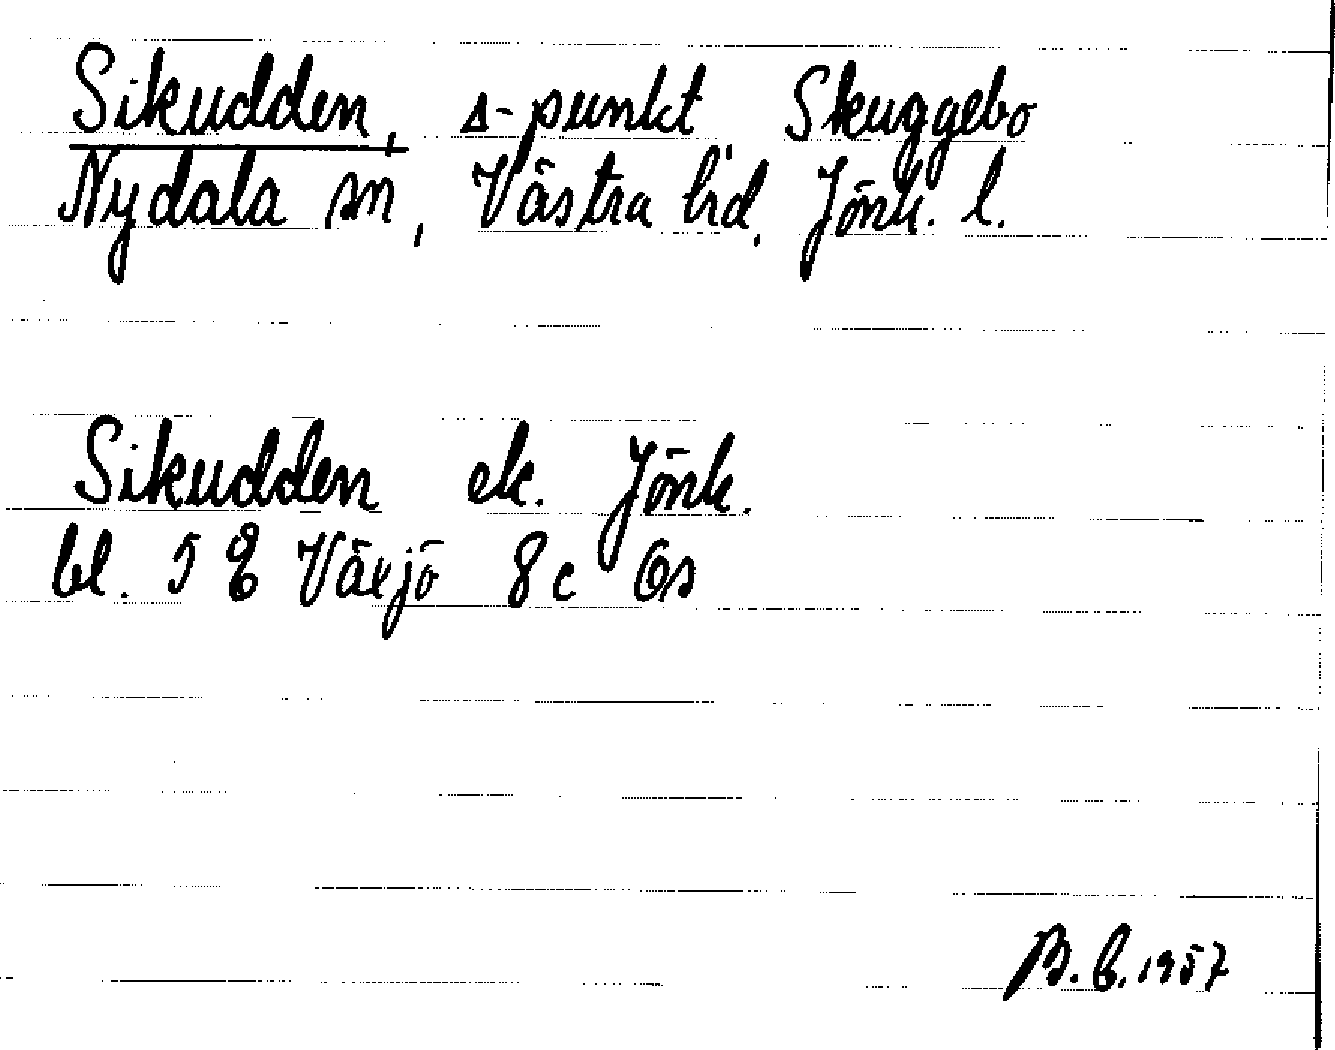 Sikudden, Δ-punkt Skuggebo
Nydala sn, Västra hd, Jönk. l.
Sikudden ek. Jönk.
bl. 5 E Växjö 8c Ös
B.E. 1957